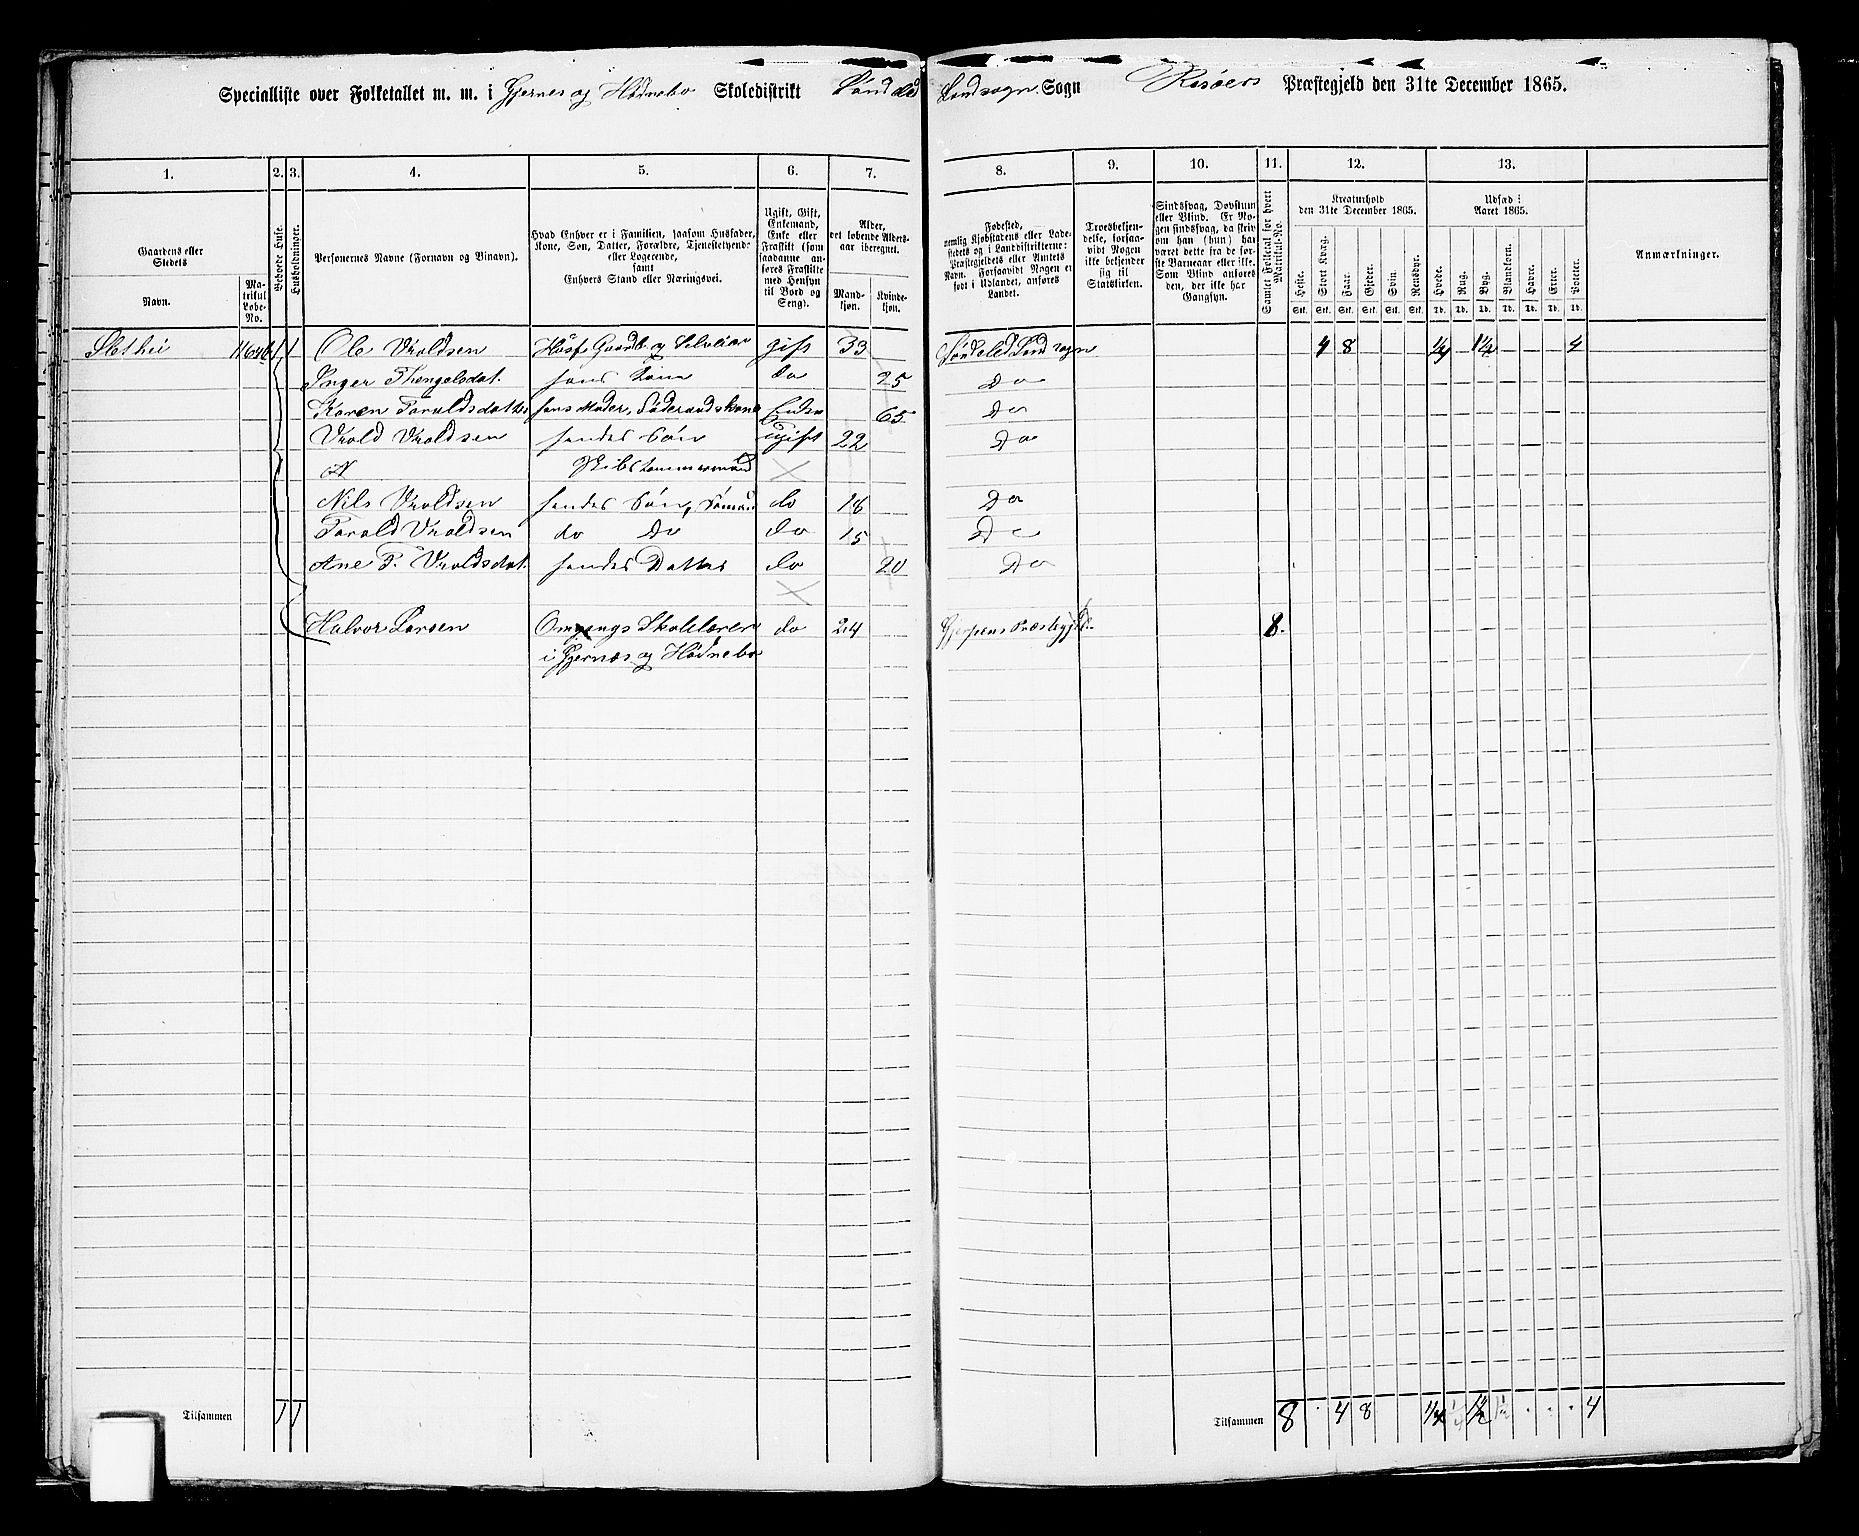 Specialliste over Folketallet m. m. i Gjernes og Hødnebo Skoledistrikt Søndeled Landsogn Sogn Risøers Præstegjeld den 31te December 1865.
1. 2. 3. 4. 5. 6. 7. 8. 9. 10. 11. 12. 13.
Gaardens eller Stedets
Navn.
Matrikul Løbe-No.
Beboede Huse.
Husholdninger.
Personernes Navne (Fornavn og Tilnavn).
Hvad Enhver er i Familien, saasom Husfader, Kone, Søn, Datter, Forældre, Tjenestetyende eller Logerende, samt Enhvers Stand eller Næringsvei.
Ugift, Gift, Enkemand, Enke eller Fraskilt (som saadanne anføres Fraskilte med Hensyn til Bord og Seng).
Alder, det løbende Alders-aar iberegnet.
Mandkjøn.
Kvindekjøn.
Fødested, nemlig Kjøbstadens eller Ladestedets og i Landdistrikterne: Præstegjeldets eller Amtets Navn. Forsaavidt Nogen er født i Udlandet, anføres Landet.
Troesbekjendelse, forsaavidt Nogen ikke bekjender sig til Statskirken.
Sindssvag, Døvstum eller Blind. Er Nogen sindssvag, da skrives om han (hun) har været dette fra de første Barneaar eller ikke. Som Blind anføres den, der ikke har Gangsyn.
Samlet Folketal for hvert Matrikul-No.
Kreaturhold den 31te December 1865.
Heste. Stort Kvæg. Faar. Gjeder. Svin. Rensdyr.
Stk. Stk. Stk. Stk. Stk. Stk.
Udsæd i Aaret 1865.
Hvede. Rug. Byg. Blandkorn. Havre. Erter. Poteter.
Td. Td. Td. Td. Td. Td. Td.
Anmærkninger.
Slethei 1 1 Ole Vroldsen Husf. Gaardb. og Selveier gift 33 Søndeled Landsogn 4 8 1/4 1 1/2 4
Inger Thengelsdat. hans Kone do 25 Do
Karen Taraldsdatter hans Moder, Føderaadskone Enke 65 Do
Vrold Vroldsen hendes Søn Ugift 22 Do
Skibstømmermand
Nils Vroldsen hendes Søn, Sømand do 18 Do
Tarald Vroldsen do Do do 15 Do
Ane T. Vroldsdat. hendes Datter do 20 Do
Halvor Larsen Omgangs Skolelærer do 24 Gjerpens Præstegjld. 8.
i Gjernæs og Hødnebo
Tilsammen 1 1 Tilsammen 8 . 4 8 1/4 1 1/2 . . . 4